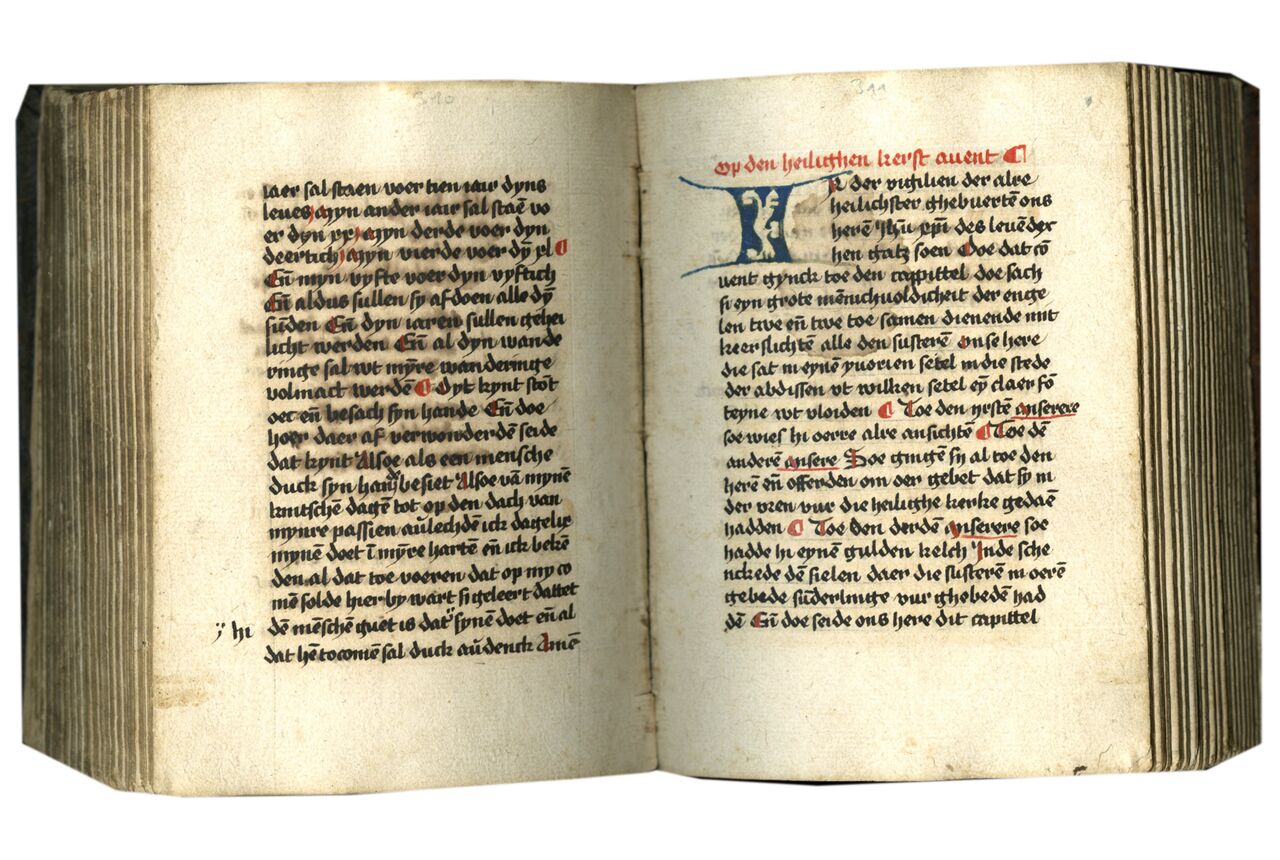 310
iaer sal staen voer tien iair dyns
leues myn ander iair sal staē vo
er dyn xx myn derde voer dyn
deertich myn vierde voer dȳ xl ¶
Eñ myn vyfte voer dyn vyftich
Eñ aldus sullen sy af doen alle dȳ
sūden Eñ dyn iaren sullen gehei
licht werden Eñ al dyn wande
ringe sal wt mȳre wanderinge
volmact werdē ¶ Dyt kynt stōt
oec eñ besach syn hande Eñ doe
hoer daer af verwonderdē seide
dat kynt Alsoe als een mensche
duck syn hand besiet Alsoe vā mynē
kintschē dagē tot op den dach van
mynre passien
mynē doet ī mȳre hartē eñ ick bekē
den al dat toe voeren dat op my co
mē solde hier by wart si geleert dattet
dē mēschē guet is dat synē doet eñ al
ÿ hi
dat hē tocomē sal duck Amē
311
op den heilighen kerst auent ¶
IN der vigilien der alre
heilichster ghebuertē ons
herē ihū xpī des leuēder
hen gatz soen Doe dat cō
uent gynck toe den cappittel doe sach
si eyn grote menichuoldicheit der enge
len twe eñ twe toe samen dienende mit
keerslichtē alle den susterē onse here
die sat in eynē yuorien setel in die stede
der abdissen vt wilken setel eȳ claer fō
teyne wt vloiden ¶ Toe den yrstē miserere
soe wies hi oerre alre ansichtē ¶ Toe dē
anderē misere Soe gingē sy al toe den
herē eñ offerden om oer gebet dat sy in
der vren vur die heilighe kerke gedaē
hadden ¶ Toe den derdē miserere soe
hadde hi eynē gulden kelch Inde sche
nckede dē sielen daer die susterē in oerē
gebede sūderlinge vur ghebedē had
dē Eñ doe seide ons here dit capittel